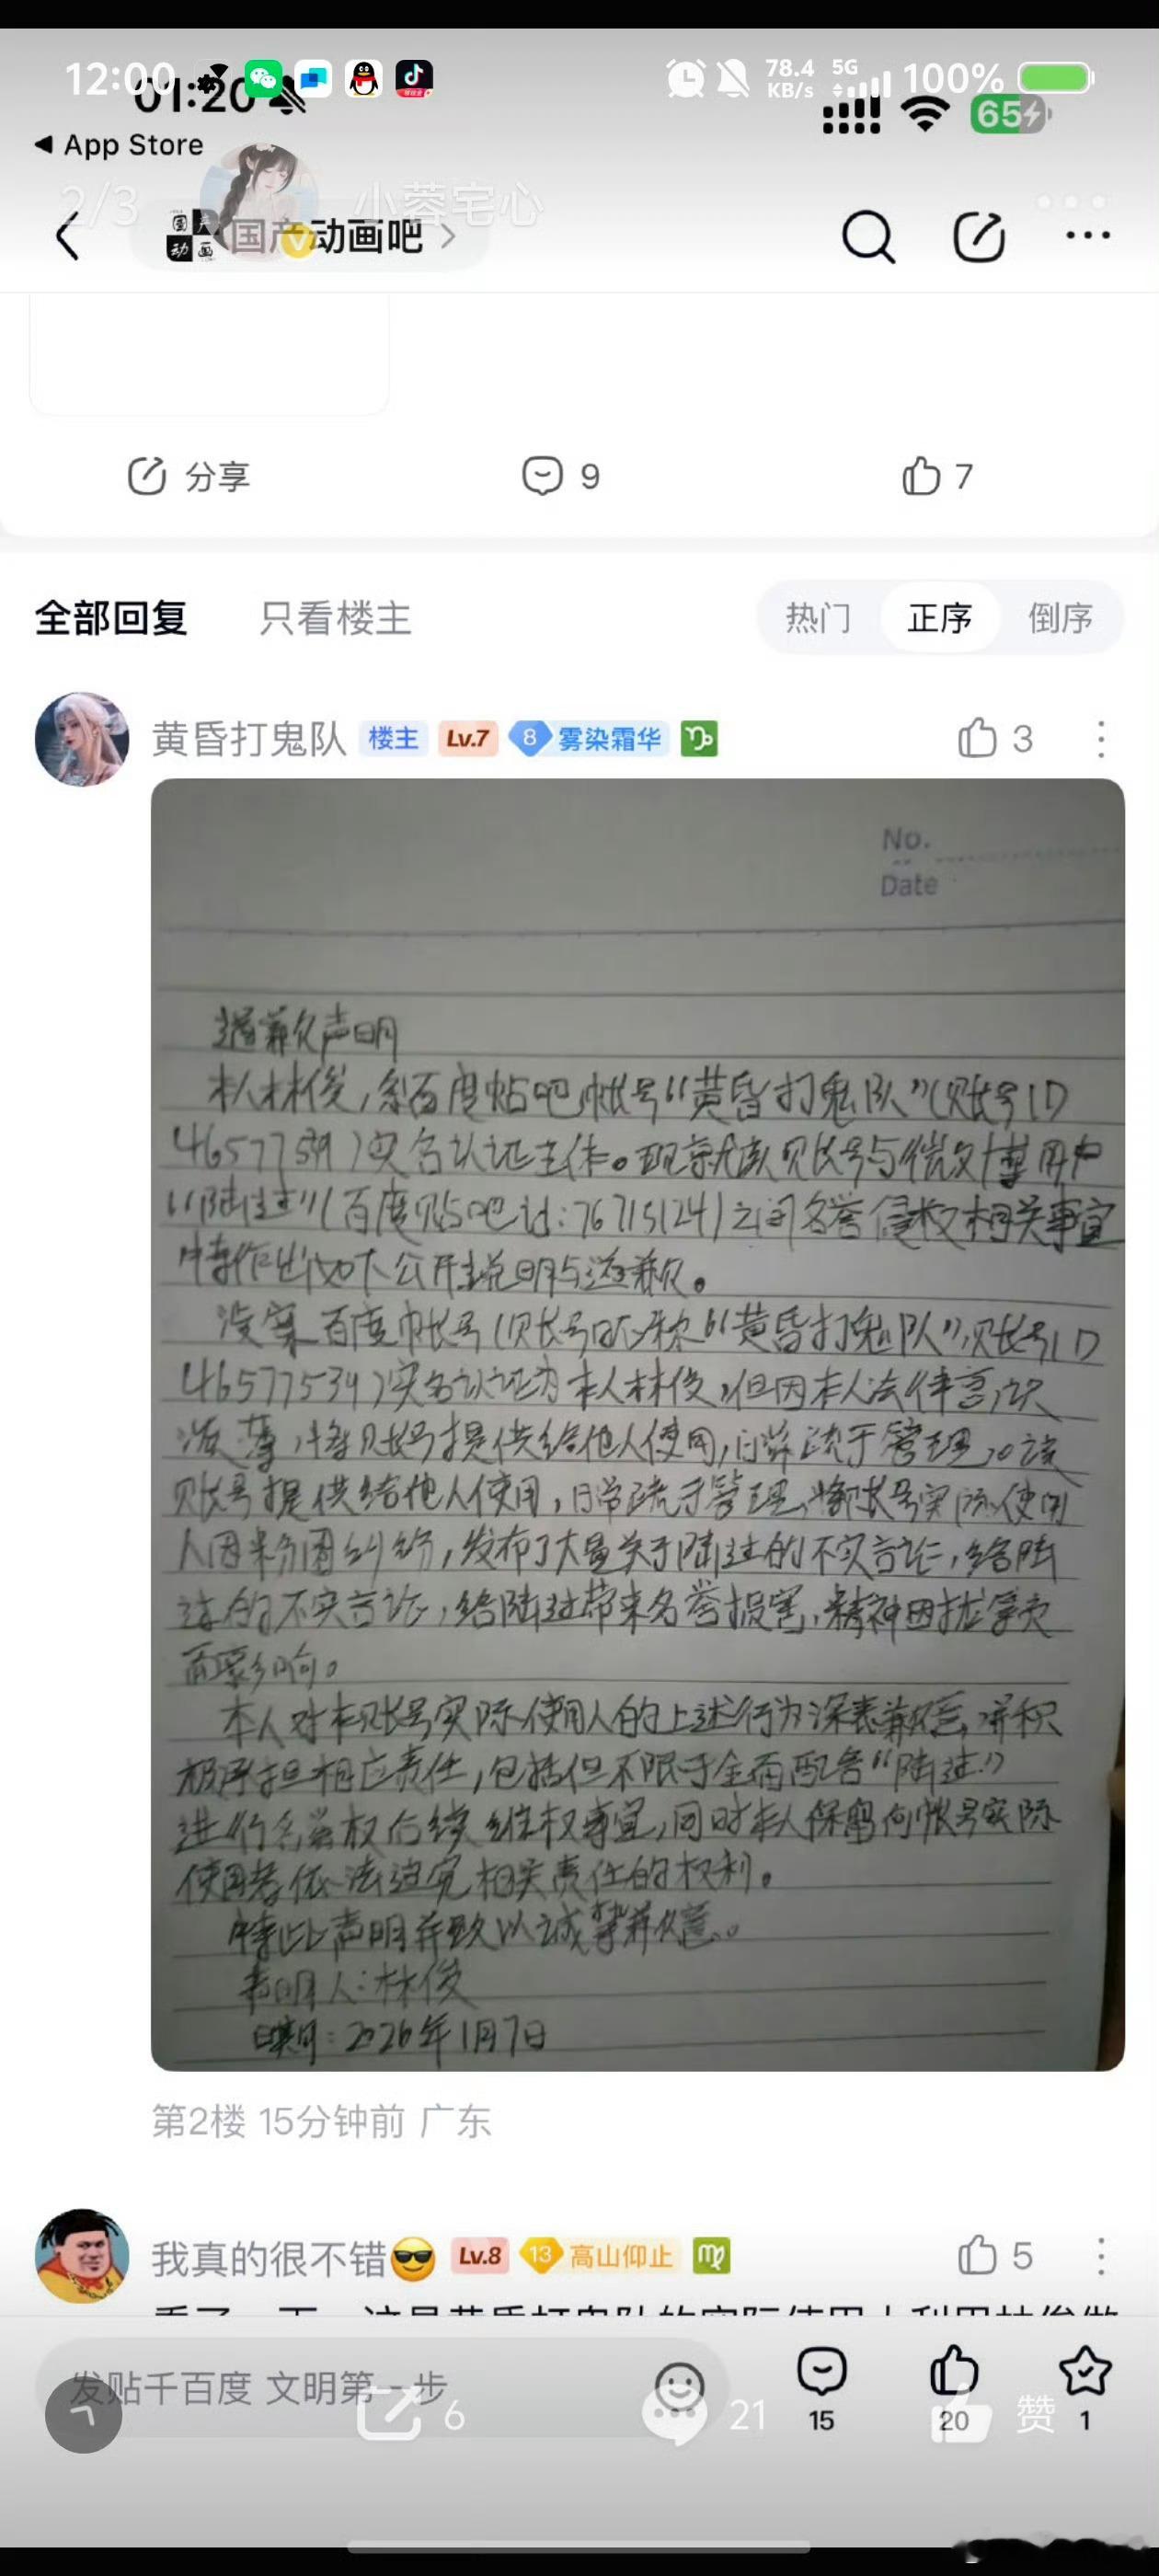 12:00
01:20
78.4 KB/s
5G
100%
65
App Store
2/3
小蓉宅心
国产动画吧
分享
9
7
全部回复
只看楼主
热门
正序
倒序
黄昏打鬼队 楼主 Lv.7 8 雾染霜华
3
No.
Date
道歉声明
本人林俊,系百度贴吧帐号“黄昏打鬼队”(账号ID
)实名认证主体。现就该账号与微博用户
“陆过”(百度贴吧id:76715124)之间名誉侵权相关事宜
特作出如下公开说明与道歉。
百度帐号(账号昵称“黄昏打鬼队”账号ID
46577539)实名认证为本人林俊,但因本人法律意识
淡薄,将账号提供给他人使用,日常疏于管理。该
账号提供给他人使用,日常疏于管理,将账号实际使用
人因粉圈纠纷,发布了大量关于陆过的不实言论,给陆
过的不实言论,给陆过带来名誉损害,精神困扰等负
面影响。
本人对本账号实际使用人的上述行为深表歉意,并积
极承担相应责任,包括但不限于全面配合“陆过”
进行名誉权后续维权事宜,同时本人保留向帐号实际
使用者依法追究相关责任的权利。
特此声明并致以诚挚歉意。
声明人:林俊
日期:2026年1月7日
第2楼 15分钟前 广东
我真的很不错 Lv.8 13 高山仰止
5
发贴千百度 文明第一步
6
21
15
20
赞
1